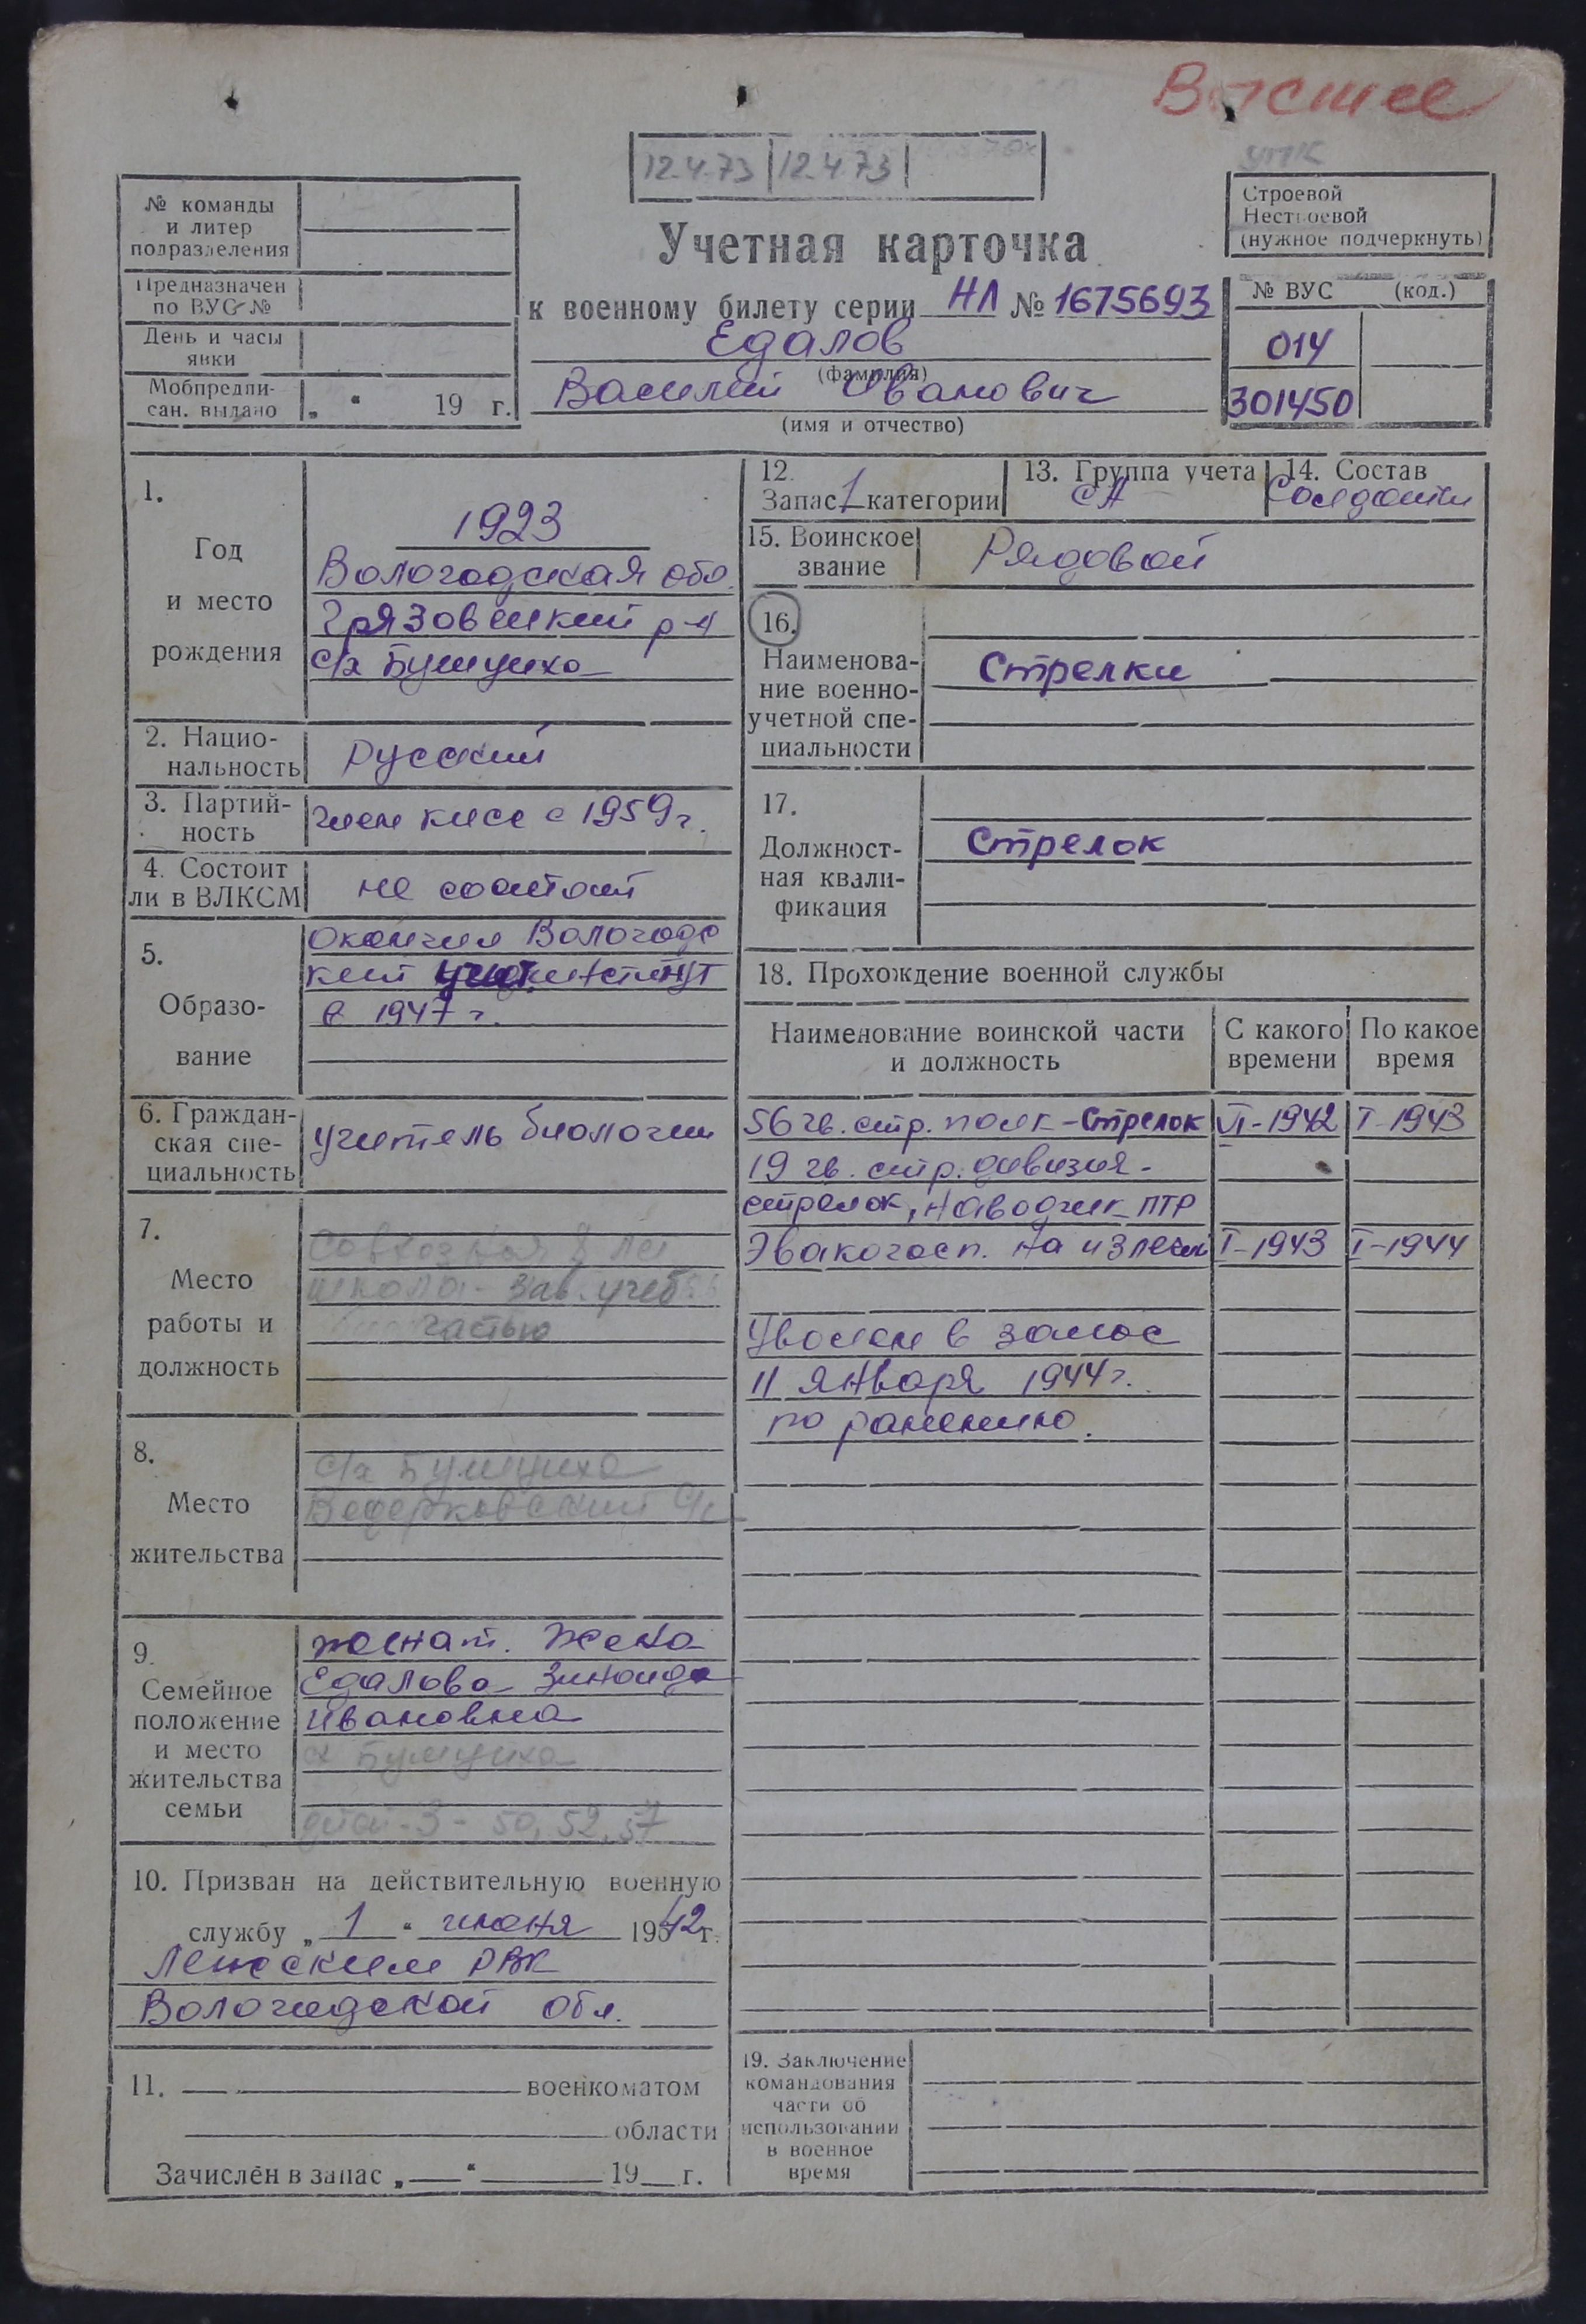 Высшее
УПК
12.4.73 12.4.73
№ команды
и литер
подразделения
Предназначен
по ВУС №
День и часы
явки
Мобпредпи-
сан. выдано „ “ 19 г.
Учетная карточка
к военному билету серии НЛ № 1675693
Едалов
(фамилия)
Василий Иванович
(имя и отчество)
Строевой
Нестроевой
(нужное подчеркнуть)
№ ВУС (код.)
014
301450
1.
Год
и место
рождения
1923
Вологодская обл.
Грязовецкий р-н
с/х Бушуиха
2. Нацио-
нальность
Русский
3. Партий-
ность
член КПСС с 1959 г.
4. Состоит
ли в ВЛКСМ
не состоит
5.
Образо-
вание
окончил Вологодс
кий учит. институт
в 1947 г.
6. Граждан-
ская спе-
циальность
учитель биологии
7.
Место
работы и
должность
Совхозная 8 лет
школа - зав. учеб
частью
8.
Место
жительства
с/х Бушуиха
Ведерковский с/с
9.
Семейное
положение
и место
жительства
семьи
женат. Жена
Едалова Зинаида
Ивановна
сх Бушуиха
детей - 3 - 50, 52, 57
10. Призван на действительную военную
службу „ 1 “ июня 1942 г.
Лежским РВК
Вологодской обл.
11. военкоматом
области
Зачислён в запас „ “ 19 г.
12.
Запас 1 категории
13. Группа учета
СА
14. Состав
Солдаты
15. Воинское
звание
Рядовой
16.
Наименова-
ние военно-
учетной спе-
циальности
Стрелки
17.
Должност-
ная квали-
фикация
Стрелок
18. Прохождение военной службы
Наименование воинской части
и должность
С какого
времени
По какое
время
56 гв. стр. полк - Стрелок VI-1942 I-1943
19 гв. стр. дивизия -
стрелок, наводчик ПТР
Эвакогосп. на излеч I-1943 I-1944
Уволен в запас
11 января 1944 г.
по ранению.
19. Заключение
командования
части об
использовании
в военное
время